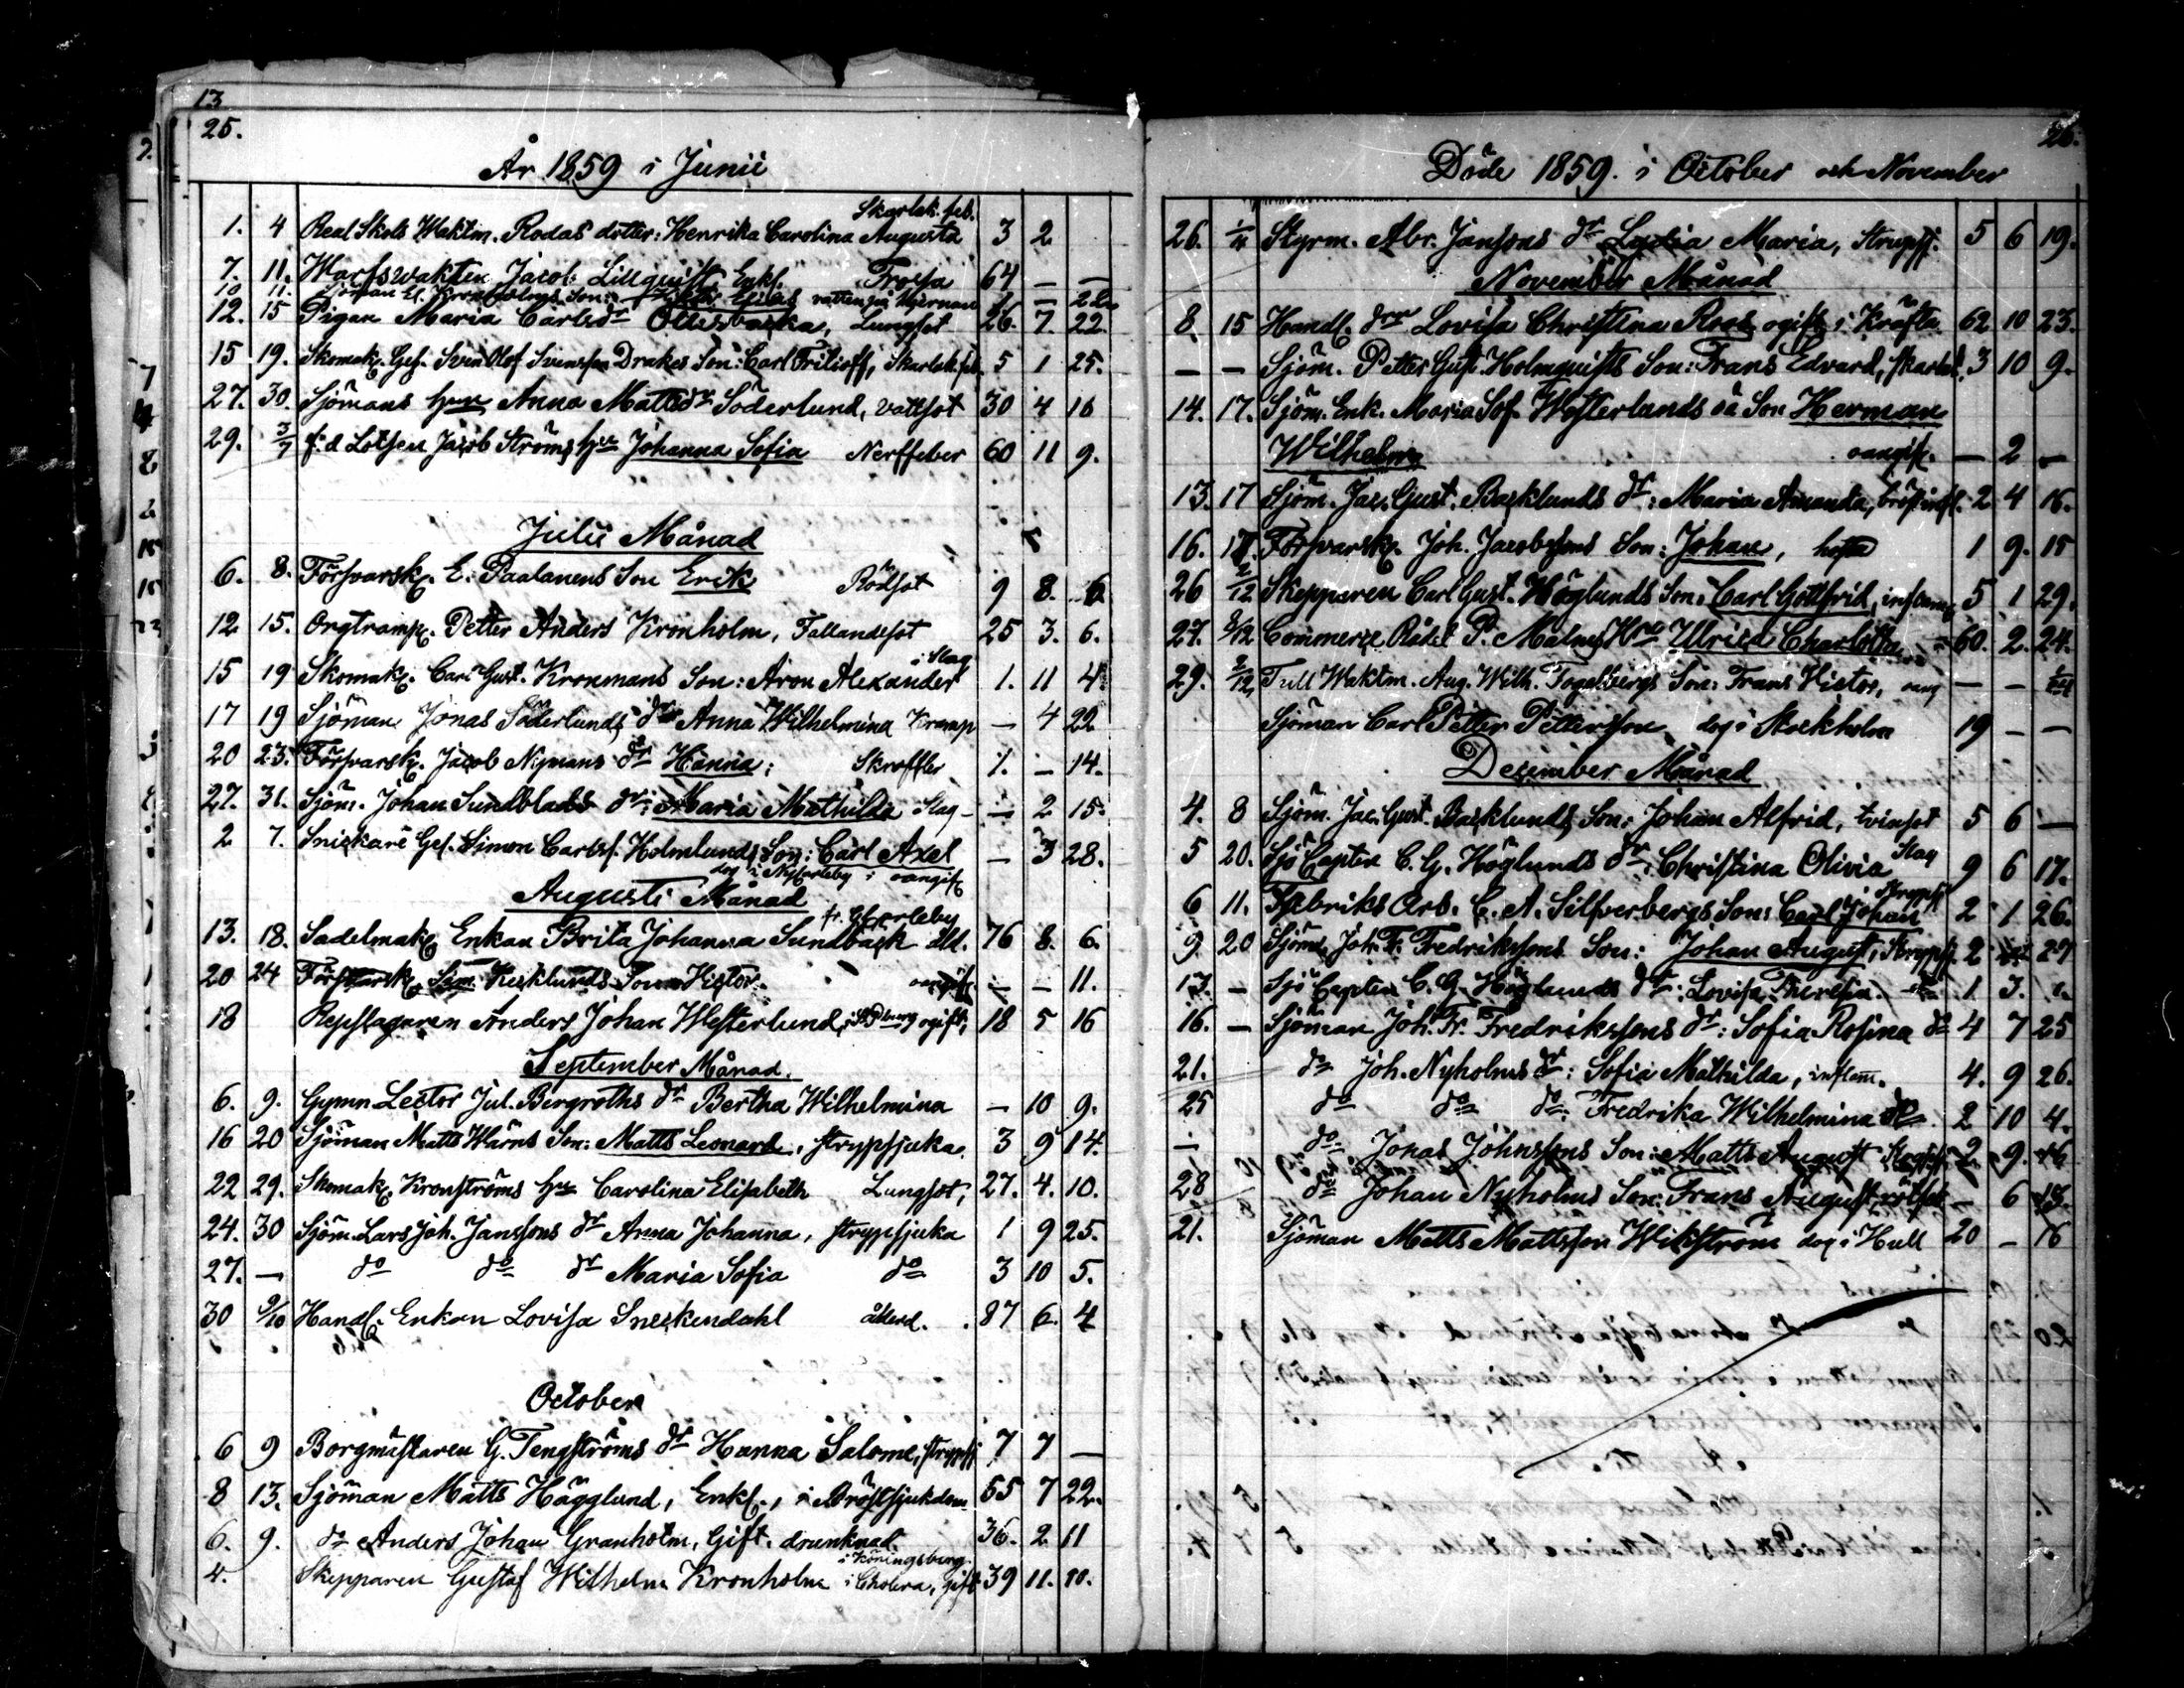 13
25.
År 1859 i Junii
Skarlak. feb.
1. 4 Real Skols Waktm. Rodas dotter: Henrika Carolina Augusta 3 2
7. 11. Warfswakten Jacob Lillquist, Enkl. Frossa 64 — —
10 11. Sjöman El. Kronholms Son: Elias vattensju
12. 15 Pigan Maria Carlsdr Lungsot 26. 7. 22.
15 19. Skomak. Ges. Sven Olof Svensson Drakes Son: Carl Fritioff, Skarlak. feb. 5 1 25.
27. 30. Sjömans hru Anna Mattsdr Söderlund, vattsot 30 4 16
29. 3/7 f.d Lotsen Jacob Ströms hru Johanna Sofia Nerffeber 60 11 9.
Julii Månad
6. 8. Försvarsk. E. Paalanens Son Erik Rödsot 9 8. 6
12 15. Orgtramp. Petter Anders Kronholm, Fallandesot 25 3. 6.
i Slag
15 19 Skomak. Carl Gust. Kronmans Son: Aron Alexander 1. 11 4
17 19 Sjöman Jonas Söderlunds dr Anna Wilhelmina Kramp — 4 22
20 23. Försvarsk. Jacob Nymans dr Hanna: Skroffler 1. — 14.
27. 31. Sjöm. Johan Sundblads dr: Maria Mathilda Slag — 2 15.
2 7. Snickare Ges. Simon Carlss. Holmlunds Son: Carl Axel — 3 28.
dog i Nykarleby i oangif.
Augusti Månad
13. 18. Sadelmak. Enkan Brita Johanna Sundbäck åld. 76 8. 6.
20 24 Försvarsk. Sim. Son Victor. oangif. — — 11.
18 Repslagaren Anders Johan Westerlund, ogift, 18 5 16
September Månad.
6. 9. Gymn Lector Jul. Bergroths dr Bertha Wilhelmina — 10 9.
16 20 Sjöman Matts Wärns Son: Matts Leonard, strypsjuka. 3 9 14.
22 29. Skomak. Kronströms hru Carolina Elisabeth Lungsot, 27. 4. 10.
24. 30 Sjöm. Lars Joh. Janssons dr Anna Johanna, strypsjuka 1 9 25.
27. — do do dr Maria Sofia do 3 10 5.
30 9/10 Handl. Enkan Lovisa Sneckendahl ålderd. 87 6. 4
October
6 9 Borgmästaren G. Tengströms dr Hanna Salome, strypsj 7 7 —
8 13. Sjöman Matts Hägglund, Enkl., i Bröstsjukdom 55 7 22.
6. 9. do Anders Johan Granholm, Gift. drunknad. 36. 2 11
i Köningsberg.
4. Skepparen Gustaf Wilhelm Kronholm i Cholera, Gift 39 11. 10.
26.
Döde 1859. i October och November
26. 1/11 Styrm. Abr. Jansons dr Lydia Maria, Strypsj. 5 6 19.
November Månad
8. 15 Handl. drr Lovisa Christina Roos ogift i Kräfta 62 10 23.
— — Sjöm. Petter Gust. Holmquists Son: Frans Edvard, skarlak. 3 10 9.
14. 17. Sjöm. Enk. Maria Sof. Westerlunds oä Son Herman
Wilhelm oangif. — 2 —
13. 17 Sjöm. Jac. Gust. Backlunds dr: Maria Amanda, bröstinfl. 2 4 16.
16. 17. Försvarsk. Joh. Jacobssons Son: Johan, hosta 1 9. 15
26 2/12 Skepparen Carl Gust. Höglunds Son: Carl Gottfrid, inflam 5 1 29.
27. 8/12 Commerze Rådet P. Malms Hru Ulrica Charlotta 60. 2. 24.
29. 2/12 Tull Waktm. Aug. Wilh. Fogelbergs Son: Frans Victor, oang — —
Sjöman Carl Petter Pettersson dog i Stockholm 19 — —
December Månad
4. 8 Sjöm. Jac. Gust. Backlunds Son: Johan Alfrid, tvinsot 5 6 —
5 20. Sjö Capten C. G. Höglunds dr: Christina Olivia Slag 9 6 17.
6 11. Fabriks Arb. C. A. Silfverbergs Son: Carl Johan Strypsj 2 1 26.
9. 20 Sjöm. Joh. Fr. Fredrikssons Son: Johan August, Strypsj. 2 29
13. — Sjö Capten C. G. Höglunds dr: Lovisa Theresia. do 1 3. 1.
16. — Sjöman Joh. Fr. Fredrikssons dr: Sofia Rosina do 4 7 25
21. do Joh. Nyholms dr: Sofia Mathilda, inflam. 4. 9 26.
25 do do do: Fredrika Wilhelmina do 2 10 4.
— do Jonas Johnssons Son: Matts August 2 9. 16
28 do Johan Nyholms Son: Frans August, — 6 13.
21. Sjöman Matts Mattsson Wikström dog i Hull 20 — 16